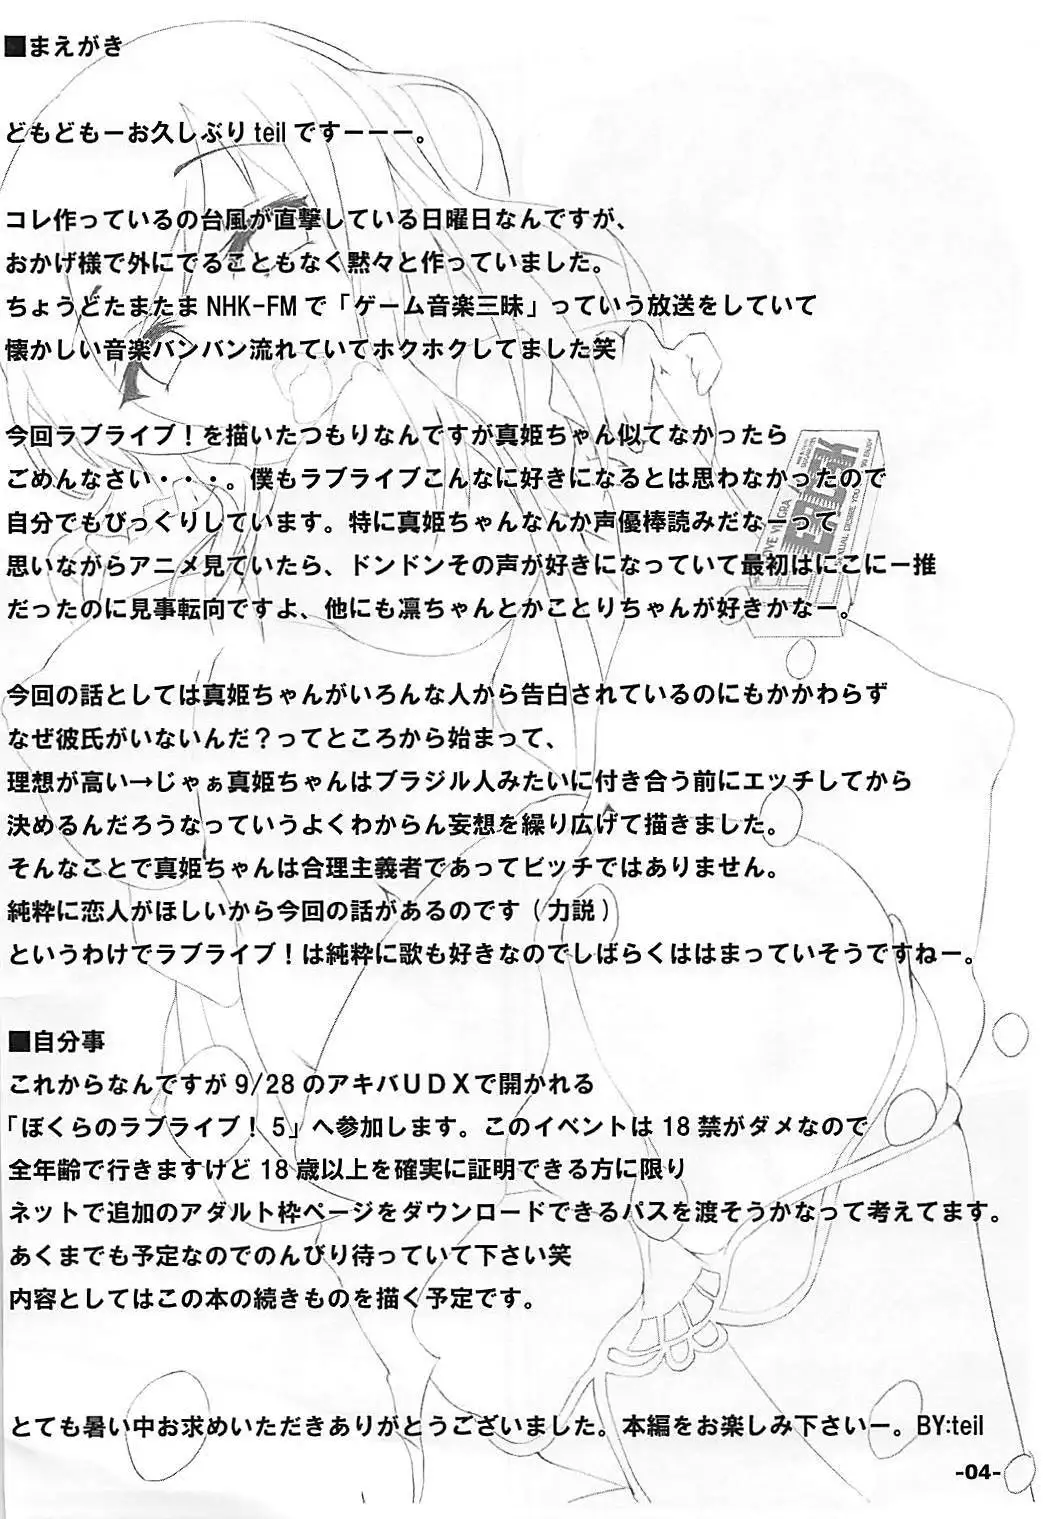 ■まえがき
どもどもーお久しぶり teil ですーーー。
コレ作っているの台風が直撃している日曜日なんですが、
おかげ様で外にでることもなく黙々と作っていました。
ちょうどたまたま NHK-FM で「ゲーム音楽三昧」っていう放送をしていて
懐かしい音楽バンバン流れていてホクホクしてました笑
今回ラブライブ！を描いたつもりなんですが真姫ちゃん似てなかったら
ごめんなさい・・・。僕もラブライブこんなに好きになるとは思わなかったので
自分でもびっくりしています。特に真姫ちゃんなんか声優棒読みだなーって
思いながらアニメ見ていたら、ドンドンその声が好きになっていて最初はにこに一推
だったのに見事転向ですよ、他にも凛ちゃんとかことりちゃんが好きかなー。
今回の話としては真姫ちゃんがいろんな人から告白されているのにもかかわらず
なぜ彼氏がいないんだ？ってところから始まって、
理想が高い→じゃぁ真姫ちゃんはブラジル人みたいに付き合う前にエッチしてから
決めるんだろうなっていうよくわからん妄想を繰り広げて描きました。
そんなことで真姫ちゃんは合理主義者であってビッチではありません。
純粋に恋人がほしいから今回の話があるのです（力説）
というわけでラブライブ！は純粋に歌も好きなのでしばらくははまっていそうですねー。
■自分事
これからなんですが 9/28 のアキバUDXで開かれる
「ぼくらのラブライブ！5」へ参加します。このイベントは 18 禁がダメなので
全年齢で行きますけど 18 歳以上を確実に証明できる方に限り
ネットで追加のアダルト枠ページをダウンロードできるパスを渡そうかなって考えてます。
あくまでも予定なのでのんびり待っていて下さい笑
内容としてはこの本の続きものを描く予定です。
とても暑い中お求めいただきありがとうございました。本編をお楽しみ下さいー。BY:teil
-04-